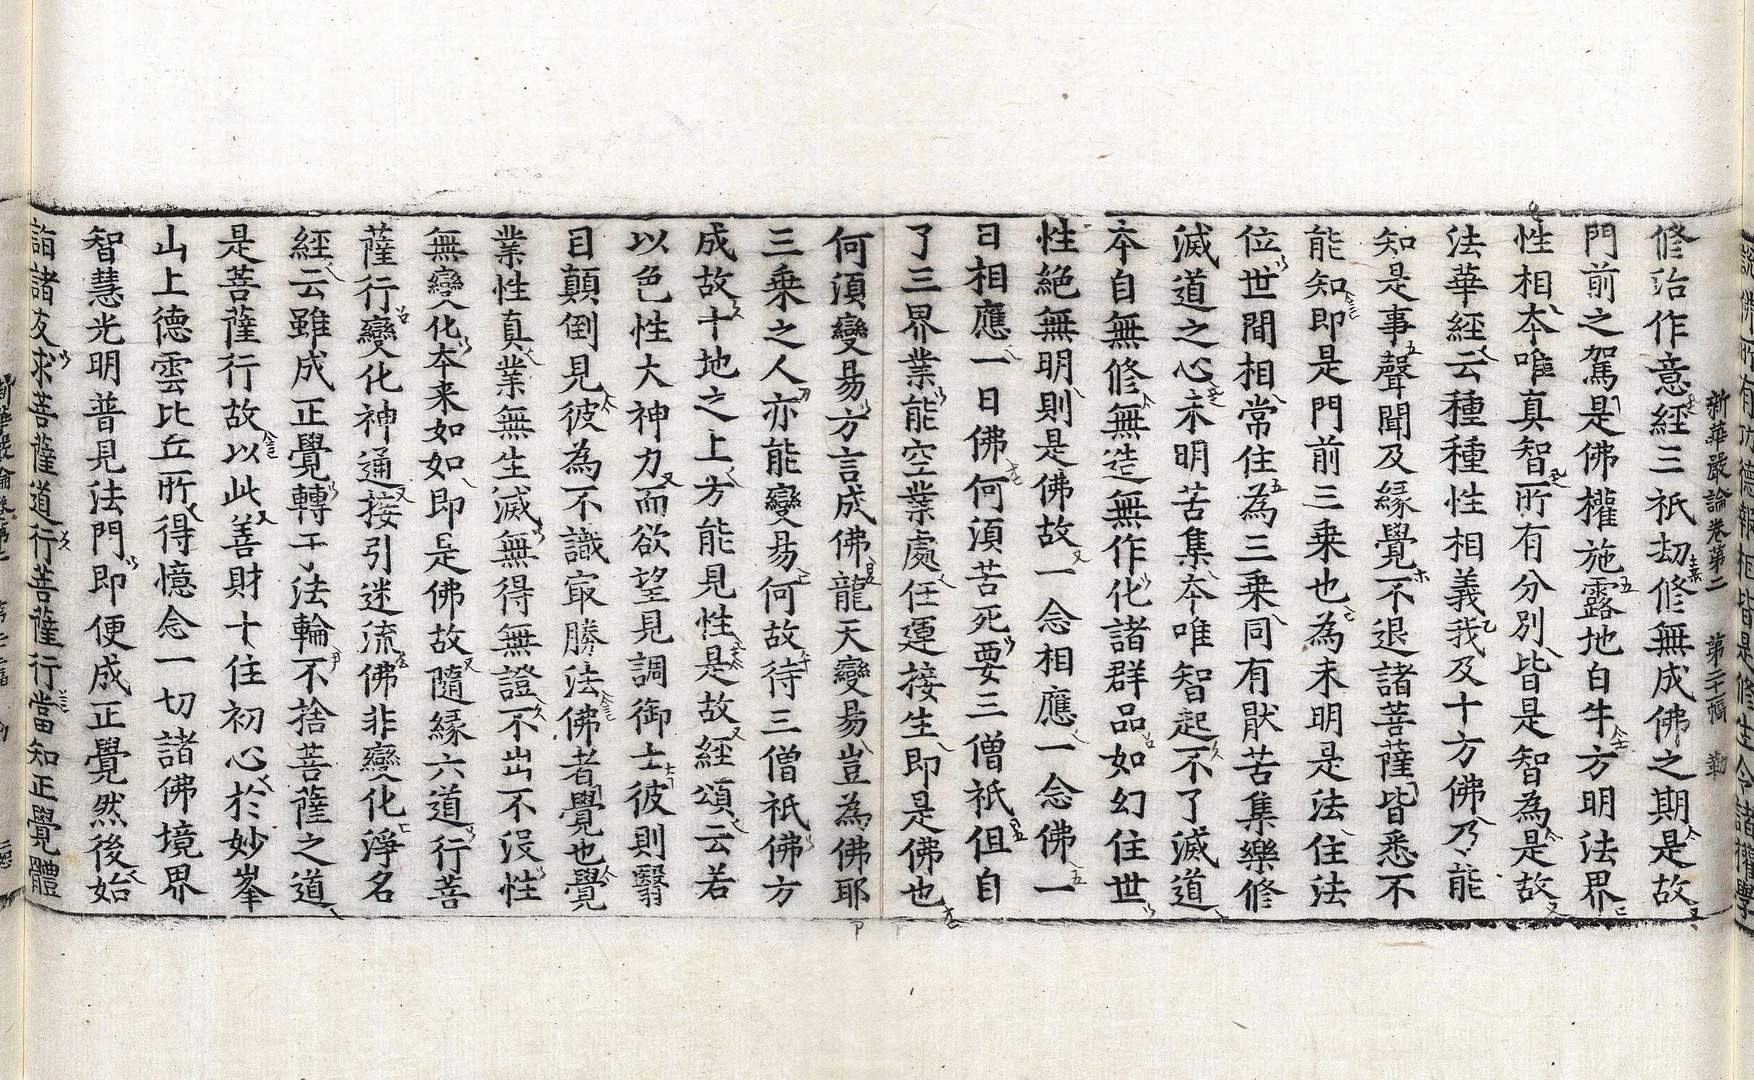 新華嚴論卷第二　第二十張　勒
修治作意經三祇劫修無成佛之期是故
門前之駕是佛權施露地白牛方明法界
性相本唯真智所有分別皆是智為是故
法華經云種種性相義我及十方佛乃能
知是事聲聞及緣覺不退諸菩薩皆悉不
能知即是門前三乗也為未明是法住法
位世間相常住為三乗同有猒苦集樂修
滅道之心未明苦集本唯智起不了滅道
本自無修無造無作化諸群品如幻住世
性絕無明則是佛故一念相應一念佛一
日相應一日佛何須苦死要三僧祇但自
了三界業能空業處任運接生即是佛也
何須變易方言成佛龍天變易豈為佛耶
三乗之人亦能變易何故待三僧祇佛方
成故十地之上方能見性是故經頌云若
以色性大神力而欲望見調御士彼則翳
目顛倒見彼為不識㝡勝法佛者覺也覺
業性真業無生滅無得無證不出不沒性
無變化本来如如即是佛故隨緣六道行菩
薩行變化神通接引迷流佛非變化淨名
經云雖成正覺轉于法輪不捨菩薩之道
是菩薩行故以此善財十住初心於妙峯
山上德雲比丘所得憶念一切諸佛境界
智慧光明普見法門即便成正覺然後始
詣諸友求菩薩道行菩薩行當知正覺體